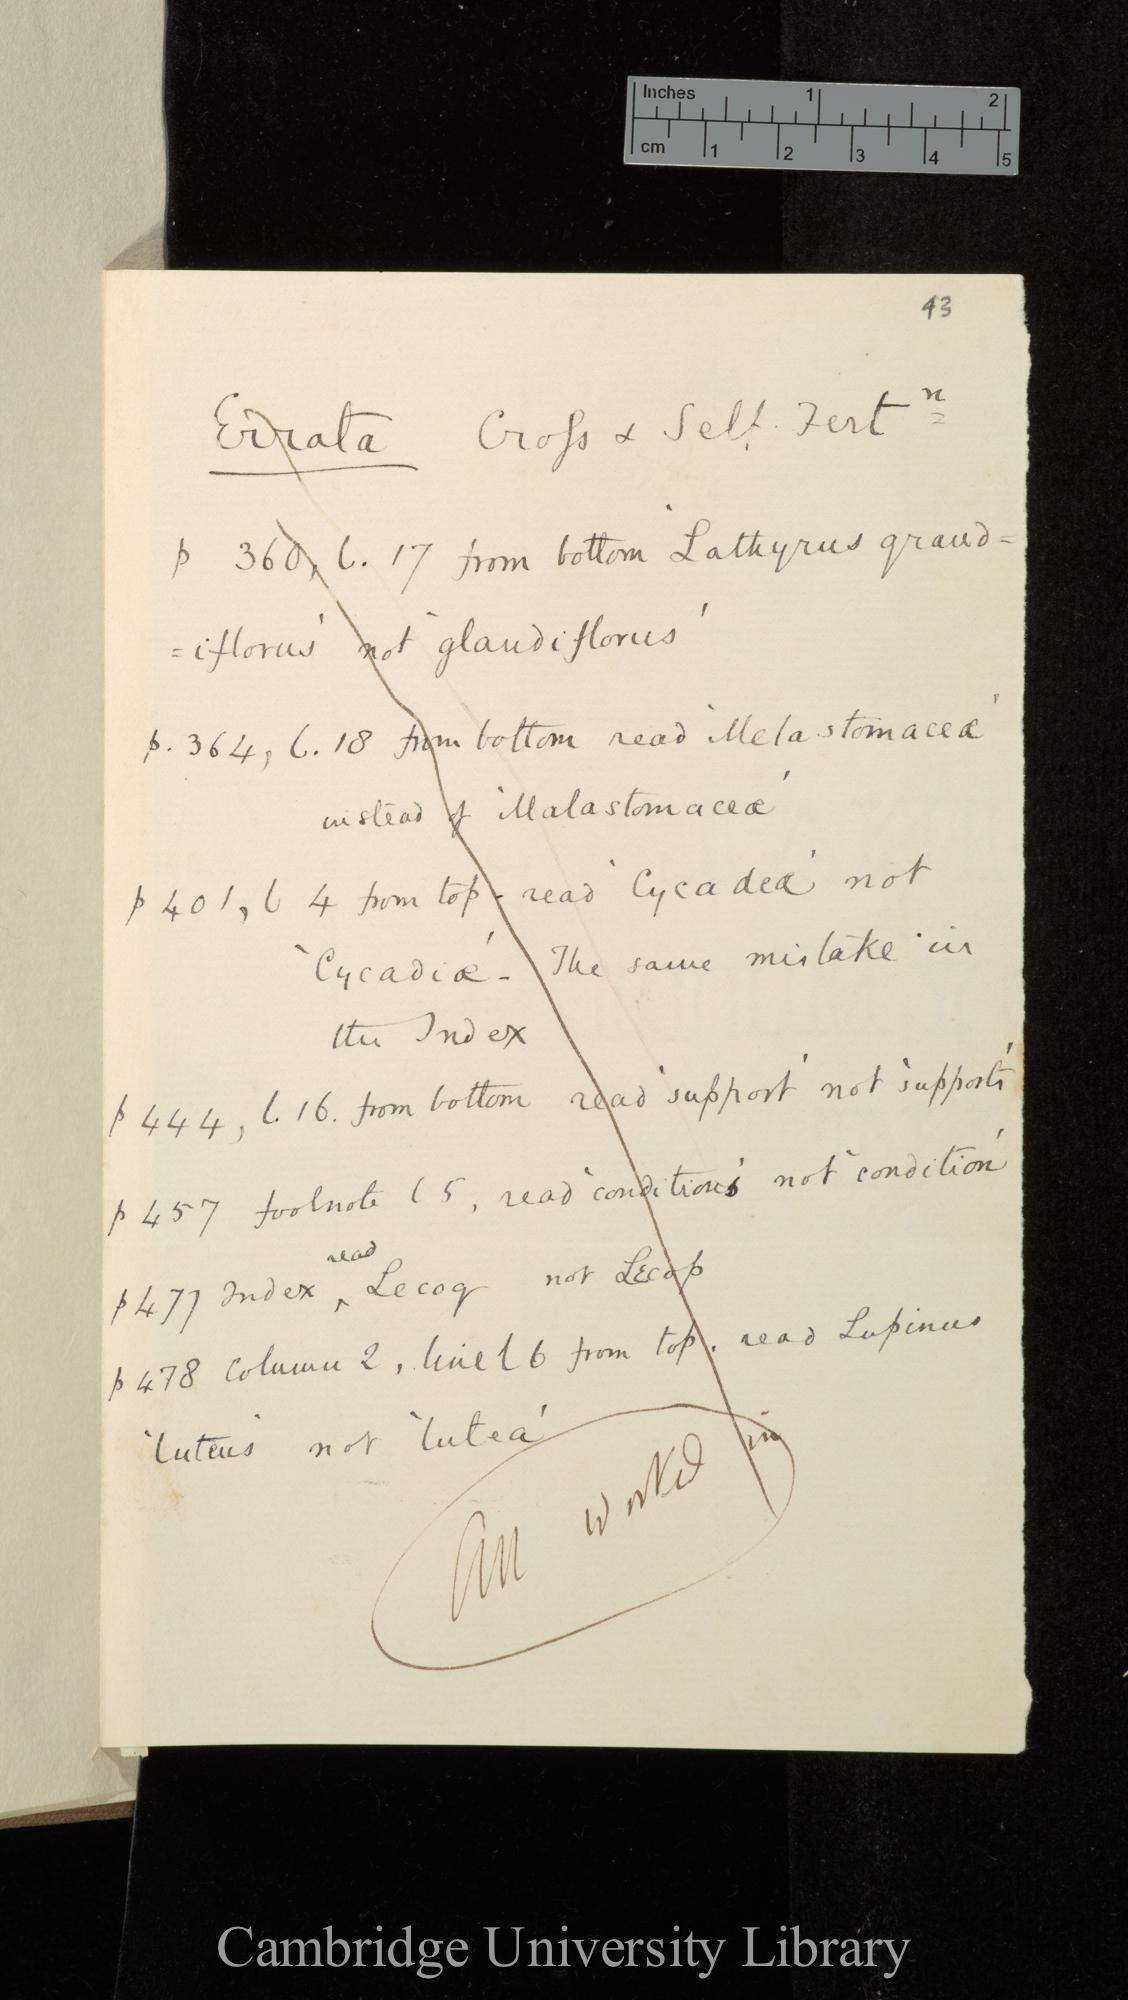 Inches 1 2
cm 1 2 3 4 5
43
Errata Cross & Self. Fertn
p 360, l. 17 from bottom 'Lathyrus grand=
=iflorus' not 'glandiflorus'
p. 364, l. 18 from bottom read 'Melastomaceæ'
instead of 'Malastomaceæ'
p 401, l 4 from top - read 'Cycadeæ' not
'Cycadiæ' - The same mistake in
the Index
p 444, l. 16. from bottom read 'support' not 'supports'
p 457 footnote l 5, read 'conditions' not 'condition'
read
p 477 Index ‸ Lecoq not Lecop
p 478 column 2, line l 6 from top. read Lupinus
'luteus' not 'lutea'
All worked in
Cambridge University Library